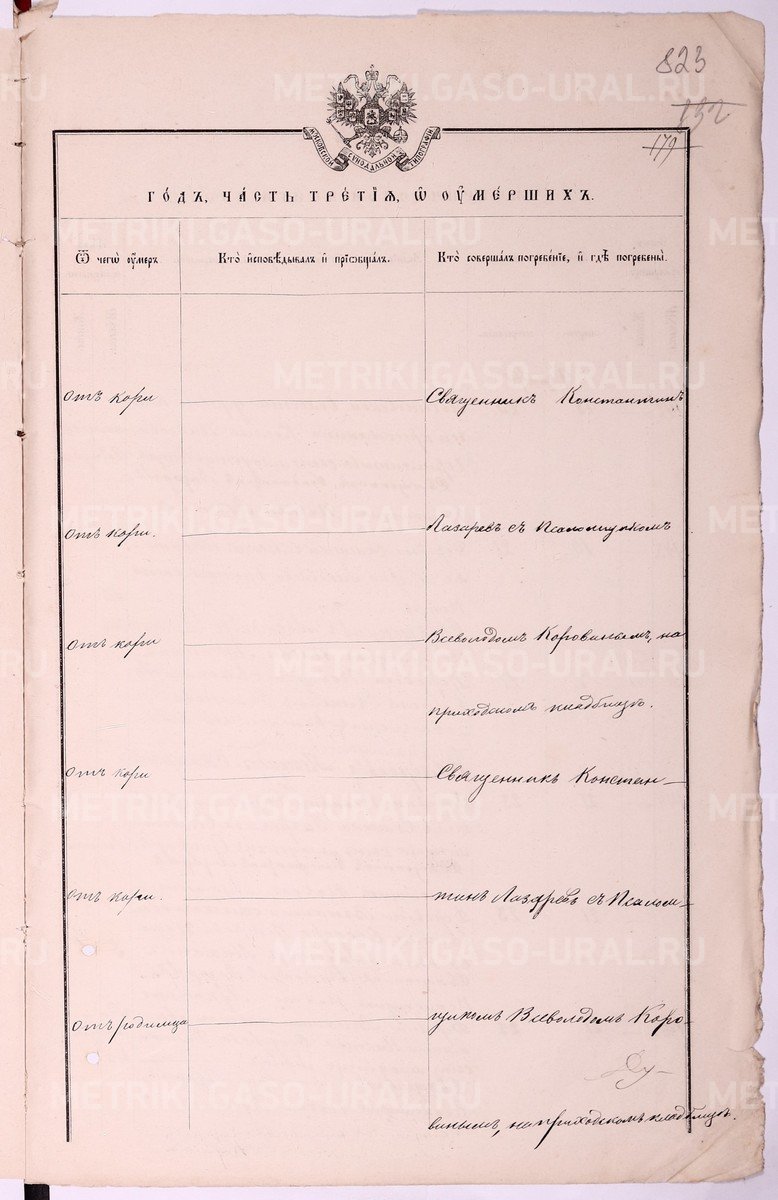 823
152
179
МОСКОВСКОЙ СѴНОДАЛЬНОЙ ТИПОГРАФІИ
ГО́ДЪ, ЧА́СТЬ ТРЕ́ТІѦ, Ѡ҆ ОУ҆МЕ́РШИХЪ.
Ѿ чегѡ̀ оу҆́меръ
Кто̀ и҆сповѣ́дывалъ и҆ прїѡбща́лъ.
Кто̀ соверша́лъ погребе́нїе, и҆ гдѣ̀ погребены̀.
отъ кори
Священникъ Константинъ
отъ кори.
Лазаревъ съ Псаломщикомъ
отъ кори
Всеволодомъ Коровинымъ, на
приходскомъ кладбищѣ.
отъ кори
Священникъ Констан-
отъ кори.
тинъ Лазаревъ съ Псалом-
отъ родимца
щикомъ Всеволодомъ Коро-
Ду-
винымъ, на приходскомъ кладбищѣ.
METRIKI.GASO-URAL.RU